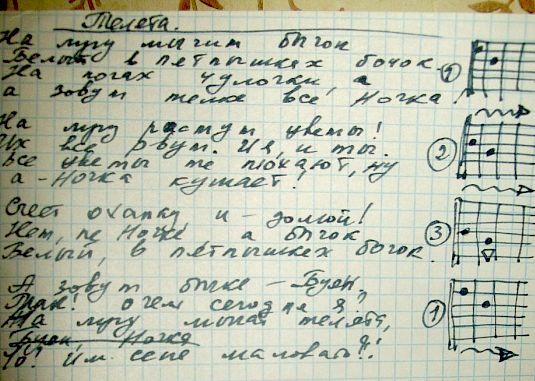 Телета.
На лугу мычит бычок
Белый в пётнышках бочок.
На ногах чулочки, а
а зовут телке все Ночка!
На лугу растут цветы!
Их все рвут. И я, и ты.
все цветы те нюхают, ну
а - Ночка кушает!
Съест охапку и - домой!
Нет, не Ночке а бычок
Белый, в пётнышках бочок.
А зовут бычке - Буен,
Так! о чем сегодня я?
На лугу мычат телята,
Буен, Ночка
То? Им сене маловато?!
1
2
3
1